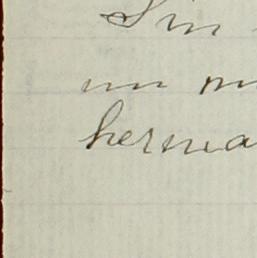 Sin
un m
herma